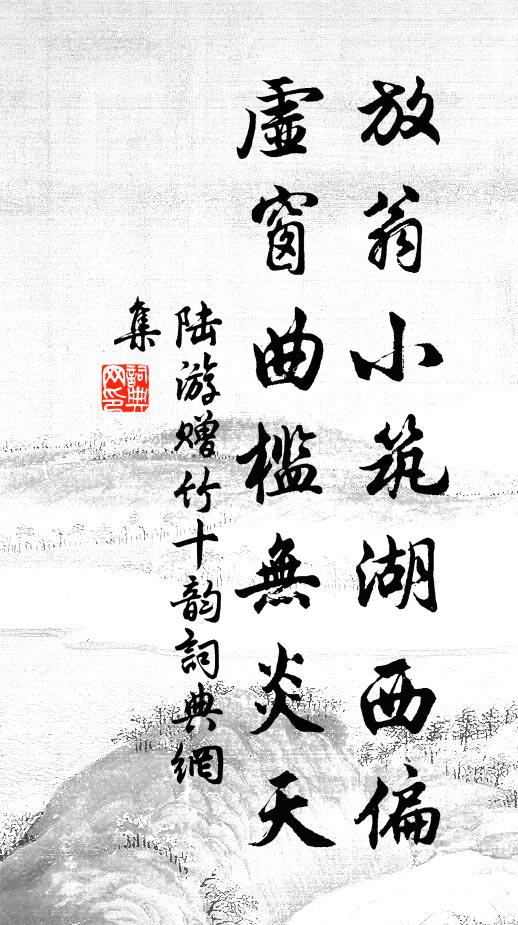 放翁小筑湖西偏
虛窗曲檻無炎天
陆游赠竹十韵詞典網
集
詞典
网印